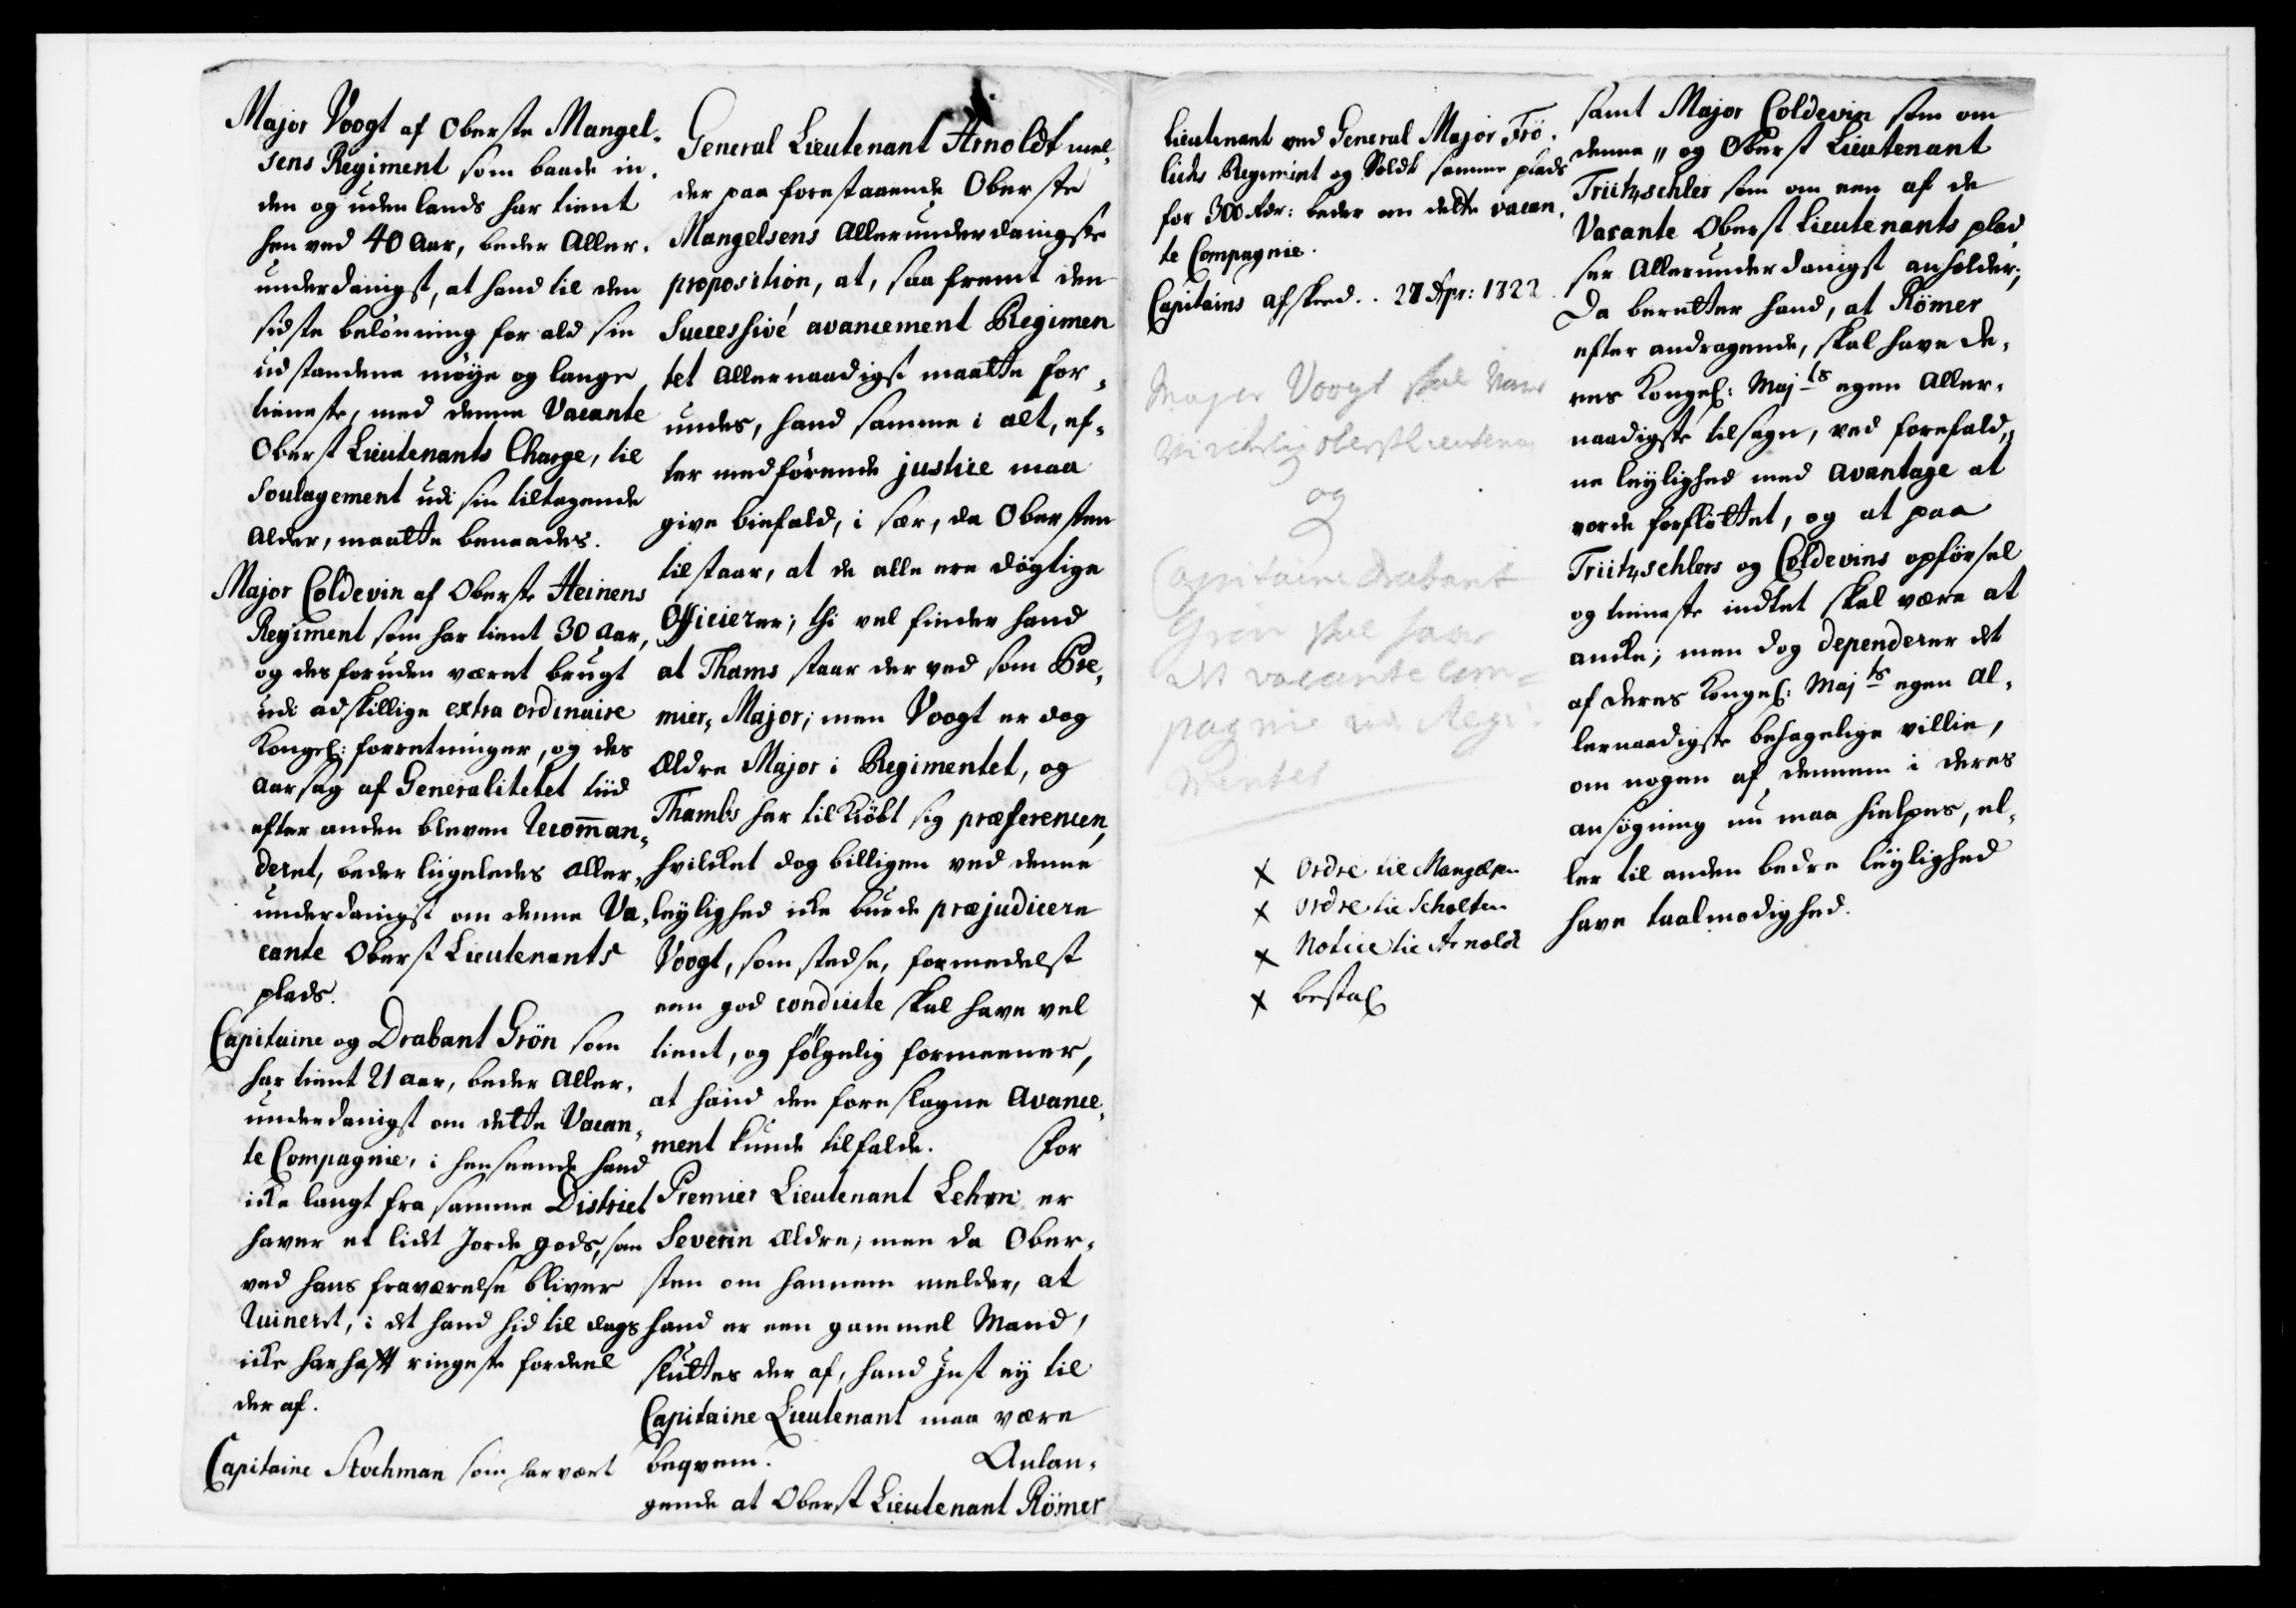 Major Voogt af Oberste Mangel-
sens Regiment som baade in-
den og uden lands har tient
hen ved 40 Aar, beder Aller-
underdanigst, at hand til den
sidste belönning for ald sin
udstandene möye og lange
tieneste, med denne Vacante
Oberst Lieutenants Charge, til
Soulagement udi sin tiltagende
Alder, maatte benaades.
Major Coldevin af Oberste Heinens
Regiment som har tient 30 Aar,
og des foruden været brugt
udi adskillige extra ordinaire
Kongel: forretninger, og des
aarsag af Generalitetet tiid
efter anden bleven Recom̄an-
deret, beder liigeledes Aller-
underdanigst om denne Va-
cante Oberst Lieutenants
plads.
Capitaine og Drabant Grön som
har tient 21 aar, beder Aller-
underdanigst om dette Vacan-
te Compagnie, i henseende hand
icke langt fra samme District
haver et lidt Jorde gods, som
ved hans fraværelse bliver
Ruineret, i det hand hid til dags
icke har hafft ringeste fordeel
der af.
Capitaine Stochman som har vært
General Lieutenant Arnoldt mel-
der paa forestaaende Oberste
Mangelsens Allerunderdanigste
proposition, at, saa fremt den
Successivé avancement Regimen
tet Allernaadigst maatte for-
undes, hand samme i alt, ef-
ter medförende justice maa
give biefald, i sær, da Obersten
tilstaar, at de alle ere dögtige
Officierer; thi vel finder hand
at Thams staar der ved som Pre-
mier-Major; men Voogt er dog
Ældre Major i Regimentet, og
Thambs har tilkiöbt sig præferencen,
hvilcket dog billigen ved denne
leylighed icke burde præjudicere
Voogt, som stedse, formedelst
een god conduite skal have vel
tient, og fölgelig formeener,
at haud den foreslagne Avance-
ment kunde tilfalde. For
Premier Lieutenant Lehn er
Severin Ældre; men da Ober-
sten om hannem melder, at
hand er een gammel Mand,
sluttes der af, hand just ey til
Capitaine Lieutenant maa være
beqvem. Anlan-
gende at Oberst Lieutenant Römer
Lieutenant ved General Major Frö-
lichs Regiment og Soldt samme plads
for 300 Rdr: beder om dette vacan-
te Compagnie.
Capitains afskeed. . 27 Apr: 1722
Major Voogt skal være
Oberstlieutenant
og
Capitaine Drabant
Grön skal have
det vacante Com-
pagnie ved Regi-
mentet
x Ordre til Mangelsen
x Ordre til Scholten
x Notice til Arnoldt
x bestal
samt Major Coldevin som om
denne, og Oberst Lieutenant
Trützschler som om een af de
Vacante Oberst Lieutenants plad
ser Allerunderdanigst anholder;
Da beretter hand, at Römer
efter andragende, skal have de-
res Kongel: Majts egen Aller-
naadigste tilsagn, ved forefald-
ne leylighed med Avantage at
vorde forflöttet, og at paa
Trützschlers og Coldevins opförsel
og tieneste indtet skal være at
ancke; men dog dependerer det
af Deres Kongel: Majts egen Al-
lernaadigste behagelige villie,
om nogen af dennem i deres
ansögning nu maa hielpes, el-
ler til anden bedre leylighed
have taalmodighed.